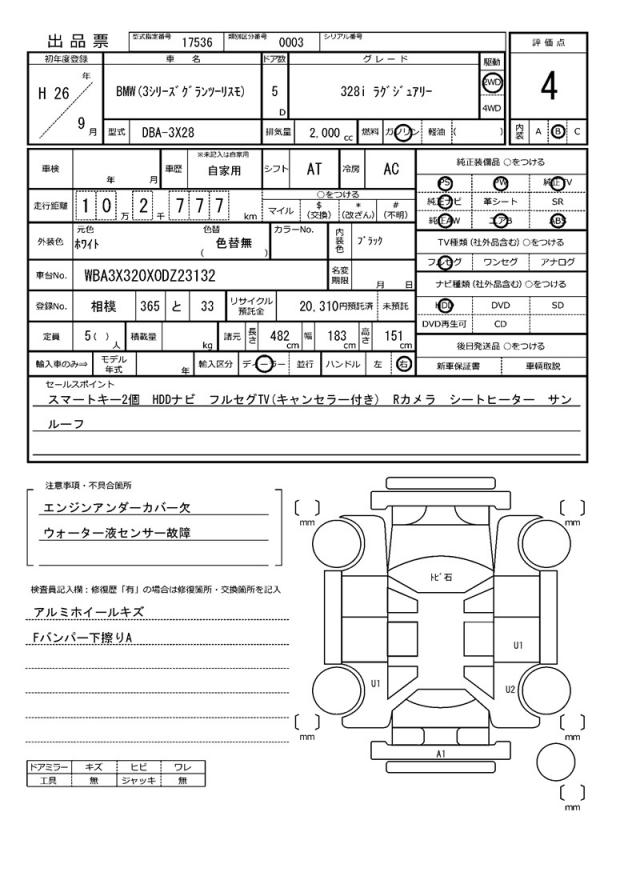 出品票 型式指定番号 17536 類別区分番号 0003 シリアル番号
初年度登録 車名 ドア数 グレード 駆動 評価点
H 26 年 9 月 BMW(3シリーズグランツーリスモ) 5 D 328i ラグジュアリー 2WD 4WD 4
型式 DBA-3X28 排気量 2,000 cc 燃料 ガソリン 軽油 ( ) 内装 A B C
車検 年 月 車歴 ※未記入は自家用 自家用 シフト AT 冷房 AC 純正装備品 ○をつける
PS PW 純正TV
走行距離 10 万 2 千 777 km ○をつける マイル $ (交換) * (改ざん) # (不明) 純正ナビ 革シート SR
純正AW エアB ABS
外装色 元色 ホワイト 色替 色替無 ( ) カラーNo. 内装色 ブラック TV種類(社外品含む)○をつける
フルセグ ワンセグ アナログ
車台No. WBA3X320X0DZ23132 名変期限 月 日 ナビ種類(社外品含む)○をつける
登録No. 相模 365 と 33 リサイクル預託金 20,310円預託済 未預託 HDD DVD SD
DVD再生可 CD
定員 5( ) 人 積載量 kg 諸元 長さ 482 cm 幅 183 cm 高さ 151 cm 後日発送品 ○をつける
輸入車のみ⇒ モデル年式 年 輸入区分 ディーラー 並行 ハンドル 左 右 新車保証書 車輌取説
セールスポイント
スマートキー2個 HDDナビ フルセグTV(キャンセラー付き) Rカメラ シートヒーター サン
ルーフ
注意事項・不具合箇所
エンジンアンダーカバー欠
ウォーター液センサー故障
検査員記入欄：修復歴「有」の場合は修復箇所・交換箇所を記入
アルミホイールキズ
Fバンパー下擦りA
ドアミラー キズ ヒビ ワレ
工具 無 ジャッキ 無
[ ] mm [ ] mm
トビ石
U1
U1 U2
[ ] mm [ ] mm
A1
[ ] mm